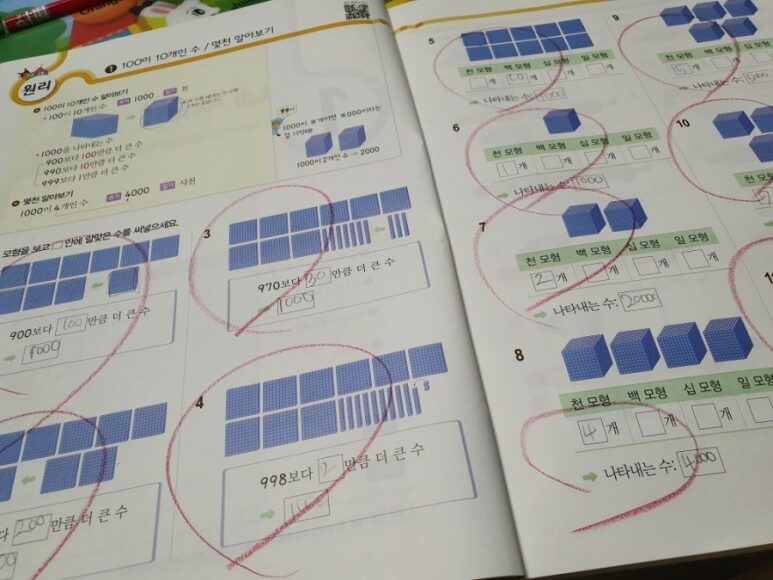 원리
1 100이 10개인 수 / 몇천 알아보기
100이 10개인 수 알아보기
100이 10개인 수
쓰기 1000 읽기 천
1000을 나타내는 수
900보다 100만큼 더 큰 수
990보다 10만큼 더 큰 수
999보다 1만큼 더 큰 수
몇천 알아보기
1000이 4개인 수 쓰기 4000 읽기 사천
1000이 2개인 수 2000
모형을 보고 □ 안에 알맞은 수를 써넣으세요.
900보다 100 만큼 더 큰 수
1000
200 만큼 더 큰 수
3
970보다 30 만큼 더 큰 수
1000
4
998보다 2 만큼 더 큰 수
5
천 모형 백 모형 십 모형 일 모형
개 10 개 개 개
나타내는 수: 1000
6
천 모형 백 모형 십 모형 일 모형
1 개 개 개 개
나타내는 수: 1000
7
천 모형 백 모형 십 모형 일 모형
2 개 개 개 개
나타내는 수: 2000
8
천 모형 백 모형 십 모형 일 모형
4 개 개 개 개
나타내는 수: 4000
9
천 모형 백 모형
나타내는 수:
10
천 모형 백 모형